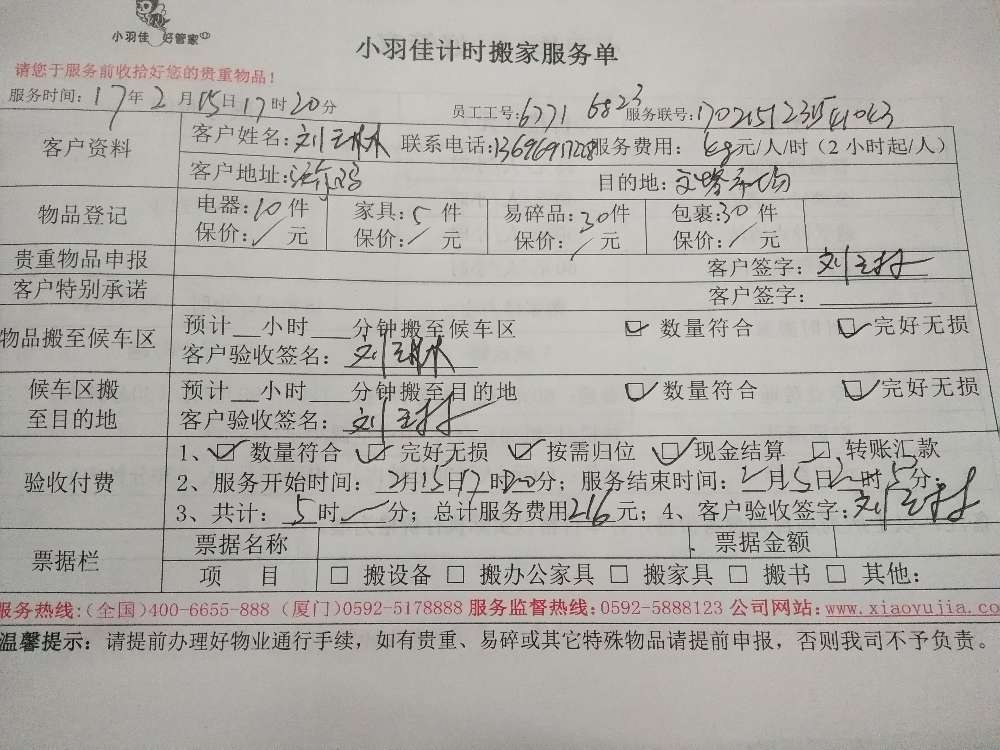 小羽佳 好管家
小羽佳计时搬家服务单
请您于服务前收拾好您的贵重物品！
服务时间：17年2月15日17时20分 员工工号：6771 6823 服务联号：
客户资料 客户姓名：刘 联系电话： 服务费用： 元/人/时（2小时起/人）
客户地址： 目的地：
物品登记 电器：10件 家具：5件 易碎品：30件 包裹：30件
保价：/元 保价：/元 保价：/元 保价：/元
贵重物品申报 客户签字：刘
客户特别承诺 客户签字：
物品搬至候车区 预计___小时___分钟搬至候车区 ☑ 数量符合 ☑完好无损
客户验收签名：刘
候车区搬至目的地 预计___小时___分钟搬至目的地 ☑数量符合 ☑完好无损
客户验收签名：刘
验收付费 1、☑数量符合 ☑完好无损 ☑按需归位 ☑现金结算 □ 转账汇款
2、服务开始时间：2月15日17时20分；服务结束时间： 月 日 时 分；
3、共计：5时/分；总计服务费用216元；4、客户验收签字：刘
票据栏 票据名称 票据金额
项 目 □ 搬设备 □ 搬办公家具 □ 搬家具 □ 搬书 □ 其他：
服务热线：(全国)400-6655-888 (厦门)0592-5178888 服务监督热线：0592-5888123 公司网站：www.xiaoyujia.co
温馨提示：请提前办理好物业通行手续，如有贵重、易碎或其它特殊物品请提前申报，否则我司不予负责。